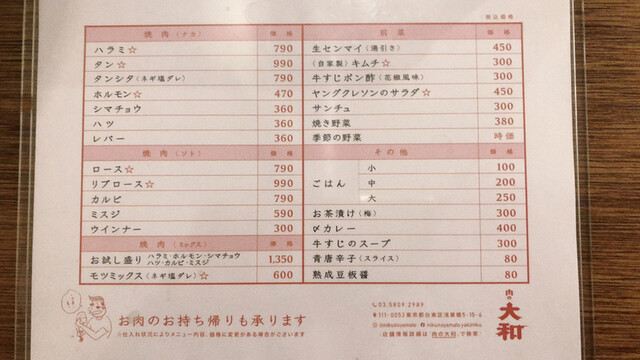 税込価格
焼肉（ナカ） 価格
ハラミ☆ 790
タン☆ 990
タンシタ（ネギ塩ダレ） 790
ホルモン☆ 470
シマチョウ 360
ハツ 360
レバー 360
焼肉（ソト） 価格
ロース☆ 790
リブロース☆ 990
カルビ 790
ミスジ 590
ウインナー 300
焼肉（ミックス） 価格
お試し盛り ハラミ・ホルモン・シマチョウ
ハツ・カルビ・ミスジ 1,350
モツミックス（ネギ塩ダレ）☆ 600
前菜 価格
生センマイ（湯引き） 450
（自家製）キムチ☆ 300
牛すじポン酢（花椒風味） 300
ヤングクレソンのサラダ☆ 450
サンチュ 300
焼き野菜 380
季節の野菜 時価
その他 価格
ごはん 小 100
中 200
大 250
お茶漬け（梅） 300
〆カレー 400
牛すじのスープ 300
青唐辛子（スライス） 80
熟成豆板醤 80
お肉のお持ち帰りも承ります
※仕入れ状況によりメニュー内容、価格に変更がある場合がございます
03.5809.2989
111-0053東京都台東区浅草橋5-15-6
店舗情報詳細は「肉の大和」で検索
肉の大和